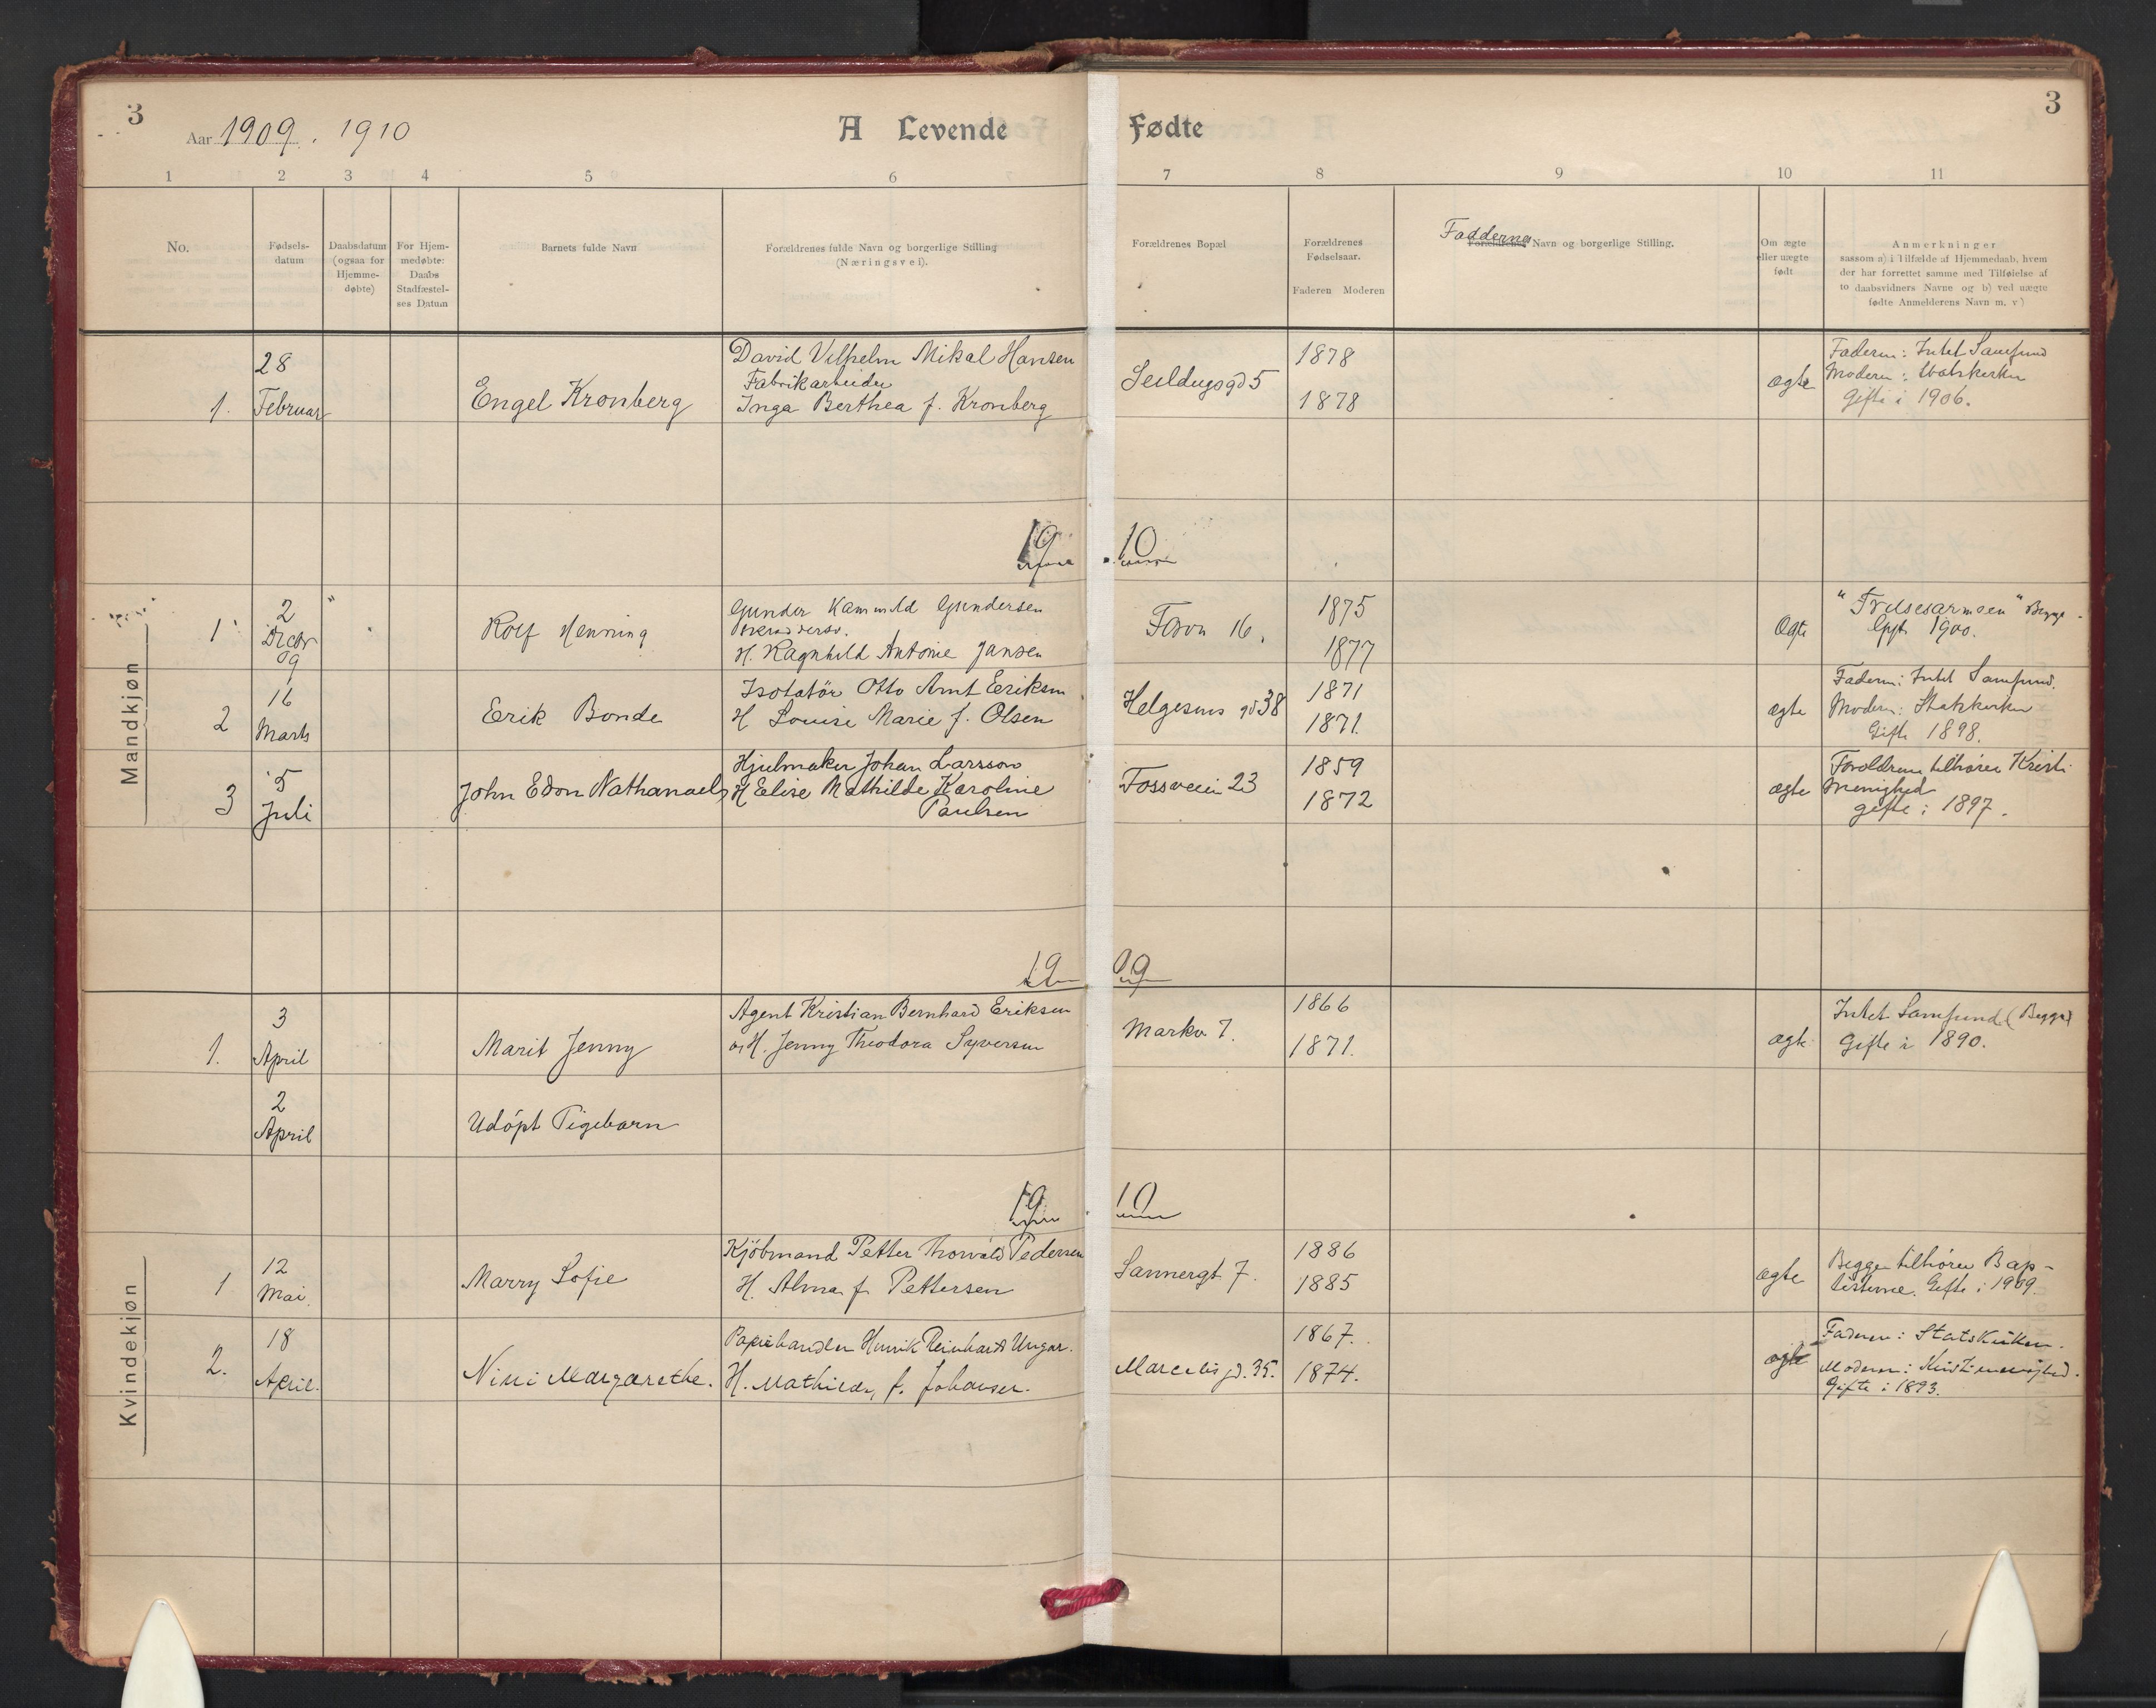 3
Aar 1909. 1910
A Levende Fødte
3
1 2 3 4 5 6 7 8 9 10 11
No.
Fødsels-
datum
Daabsdatum
(ogsaa for
Hjemme-
døbte)
For Hjem-
medøbte:
Daabs
Stadfæstel-
ses Datum
Barnets fulde Navn
Forældrenes fulde Navn og borgerlige Stilling
(Næringsvei).
Forældrenes Bopæl
Forældrenes
Fødselsaar.
Faderen Moderen
Faddernes
Forældrenes Navn og borgerlige Stilling.
Om ægte
eller uægte
født
Anmerkninger
sassom a) i Tilfælde af Hjemmedaab, hvem
der har forrettet samme med Tilføielse af
to daabsvidners Navne og b) ved uægte
fødte Anmelderens Navn m. v)
1.
28
Februar
Engel Kronberg
David Vilhelm Mikal Hansen
Fabrikarbeider
Inga Berthea f. Kronberg
Seildugsgd 5
1878
1878
ægte
Faderen: Intet Samfund
Moderen: Statskirken
Gifte i 1906.
1910
Mandkjøn
1
2
Decbr
09
Rolf Henning
Gunder Gundersen
H. Ragnhild Antonie Jansen
Fosvn 16.
1875
1877
Ægte
"Frelsesarmeen" Begge
Gift 1900.
2
16
Marts
Erik Bonde
Isolatör Otto Arnt Eriksen
H Louise Marie f. Olsen
Helgesens gd 38
1871
1871.
ægte
Faderen: Intet Samfund.
Moderen: Statskirken
Gifte 1898.
3
5
Juli
John Edon Nathanael
Hjulmaker Johan Larsson
H Elise Mathilde Karoline
Paulsen
Fossveien 23
1859
1872
ægte
Forældrene tilhører Kristi
menighed
gifte i 1897.
1909
1.
3
April
Marit Jenny
Agent Kristian Bernhard Eriksen
og H. Jenny Theodora Syversen
Markv 7.
1866
1871.
ægte
Intet Samfund (Begge)
Gifte i 1890.
2
April
Udöpt Pigebarn
1910
Kvindekjøn
1
12
Mai
Marry Sofie
Kjöbmand Petter Thorvald Pedersen
H. Alma f. Pettersen
Sannergt 7.
1886
1885
ægte
Begge tilhører Bap-
tisterne. Gifte i 1909.
2.
18
April.
Nini Margarethe.
Papirhandler Henrik Reinhardt Ungar.
H. Mathilde, f. Johansen.
Marcelis gd. 35.
1867.
1874.
ægte
Faderen: Statskirken.
Moderen: Kristi menighed.
Gifte i 1893.